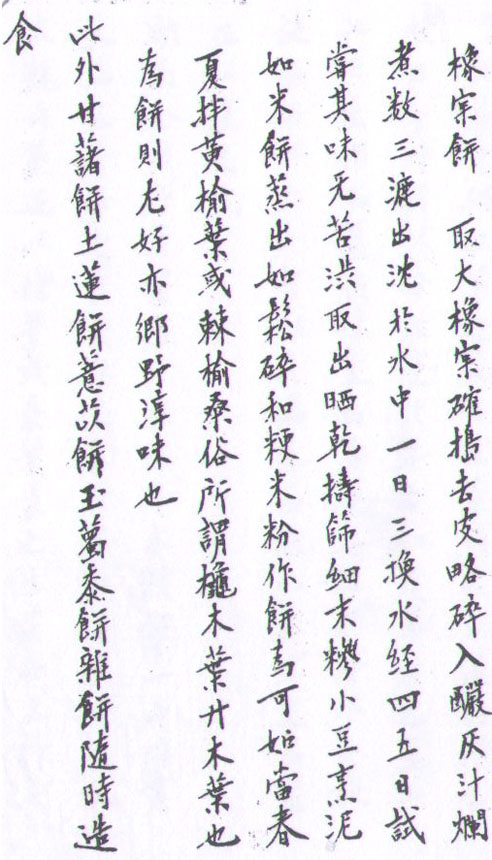 橡宗餠 取大橡宗確搗去皮略碎入釅灰汁爛
煮数三漉出沈於水中一日三換水経四五日試
嘗其味无苦渋取出晒乾擣篩細末糝小豆烹泥
如米餠蒸出如鬆碎和粳米粉作餠為可如當春
夏拌黄榆葉或棘榆桑俗所謂櫷木葉廾木葉也
為餠則尤好亦鄉野淳味也
此外甘藷餠土蓮餠薏苡餠玉葛黍餠雜餠隨時造
食